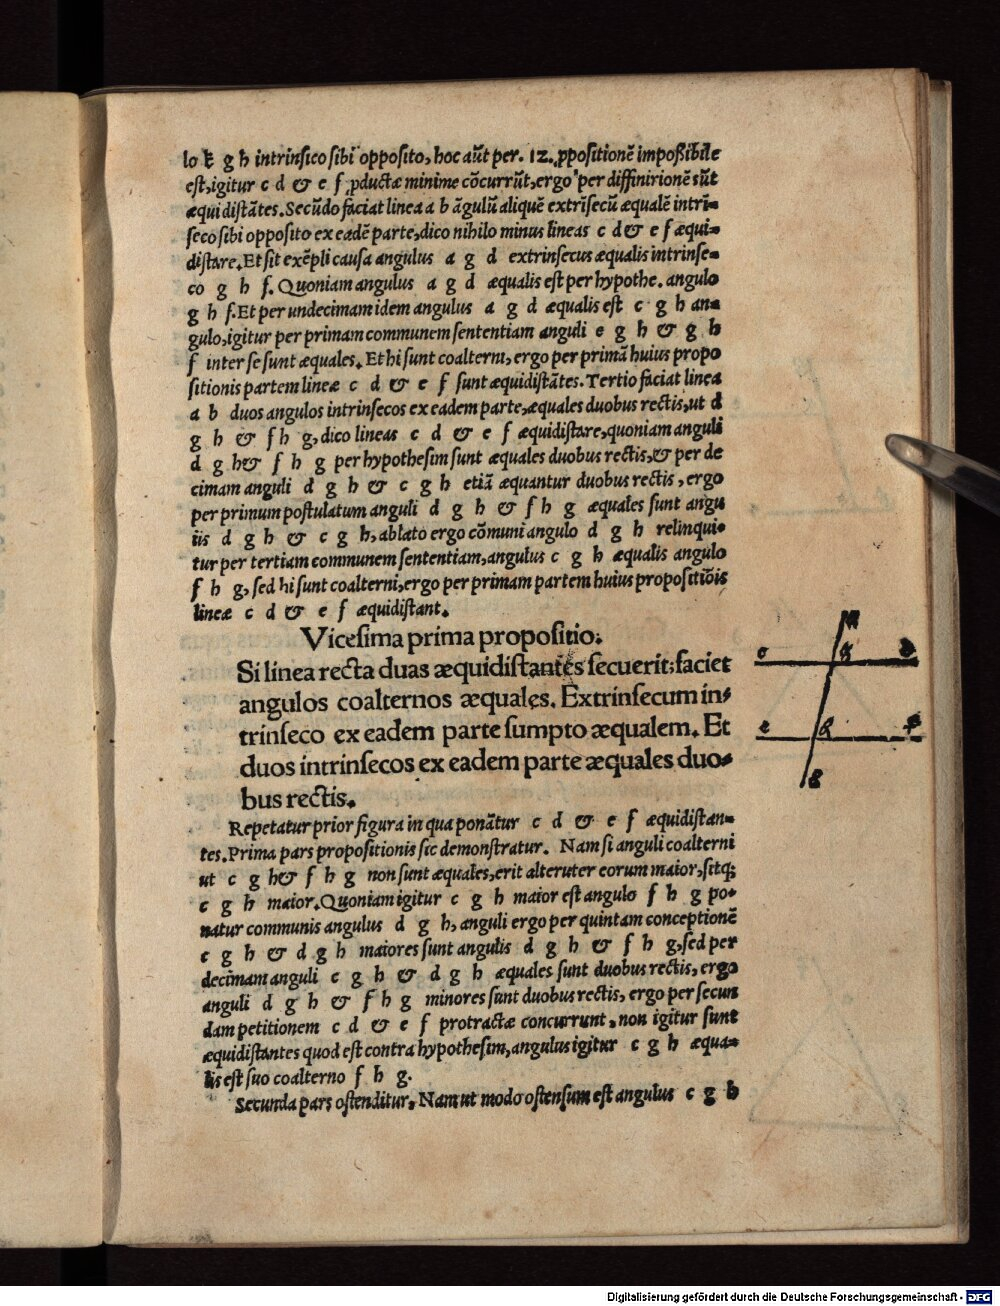 lo k g h intrinsico sibi opposito, hoc aūt per. 12. ꝓpositionē impoßibile
est, igitur c d & e f ꝓductæ minime cōcurrūt, ergo per diffinirionē sūt
æquidistātes. Secūdo faciat linea a b āgulū aliquē extrīsecū æqualē intri-
seco sibi opposito ex eadē parte, dico nihilo minus lineas c d & e f æqui-
distare. Et sit exēpli causa angulus a g d extrinsecus æqualis intrinse-
co g h f. Quoniam angulus a g d æqualis est per hypothe. angulo
g h f. Et per undecimam idem angulus a g d æqualis est c g h an-
gulo, igitur per primam communem sententiam anguli e g h & g h
f inter se sunt æquales. Et hi sunt coalterni, ergo per primā huius propo
sitionis partem lineæ c d & e f sunt æquidistātes. Tertio faciat linea
a b duos angulos intrinsecos ex eadem parte, æquales duobus rectis, ut d
g h & f h g, dico lineas c d & e f æquidistare, quoniam anguli
d g h & f h g per hypothesim sunt æquales duobus rectis, & per de
cimam anguli d g h & c g h etiā æquantur duobus rectis, ergo
per primum postulatum anguli d g h & f h g æquales sunt angu
iis d g h & c g h, ablato ergo cōmuni angulo d g h relinqui-
tur per tertiam communem sententiam, angulus c g h æqualis angulo
f h g, sed hi sunt coalterni, ergo per primam partem huius propositiōis
lineæ c d & e f æquidistant.
Vicesima prima propositio.
Si linea recta duas æquidistantes secuerit: faciet
angulos coalternos æquales. Extrinsecum in-
trinseco ex eadem parte sumpto æqualem. Et
duos intrinsecos ex eadem parte æquales duo-
bus rectis.
a
c g d
e h f
b
Repetatur prior figura in qua ponātur c d & e f æquidistan-
tes. Prima pars propositionis sic demonstratur. Nam si anguli coalterni
ut c g h & f h g non sunt æquales, erit alteruter eorum maior, sitq;
c g h maior. Quoniam igitur c g h maior est angulo f h g po-
natur communis angulus d g h, anguli ergo per quintam conceptionē
c g h & d g h maiores sunt angulis d g h & f h g, sed per
decimam anguli c g h & d g h æquales sunt duobus rectis, ergo
anguli d g h & f h g minores sunt duobus rectis, ergo per secun
dam petitionem c d & e f protractæ concurrunt, non igitur sunt
æquidistantes quod est contra hypothesim, angulus igitur c g h æqua-
lis est suo coalterno f h g.
Secunda pars ostenditur. Nam ut modo ostensum est angulus c g h
Digitalisierung gefördert durch die Deutsche Forschungsgemeinschaft - DFG